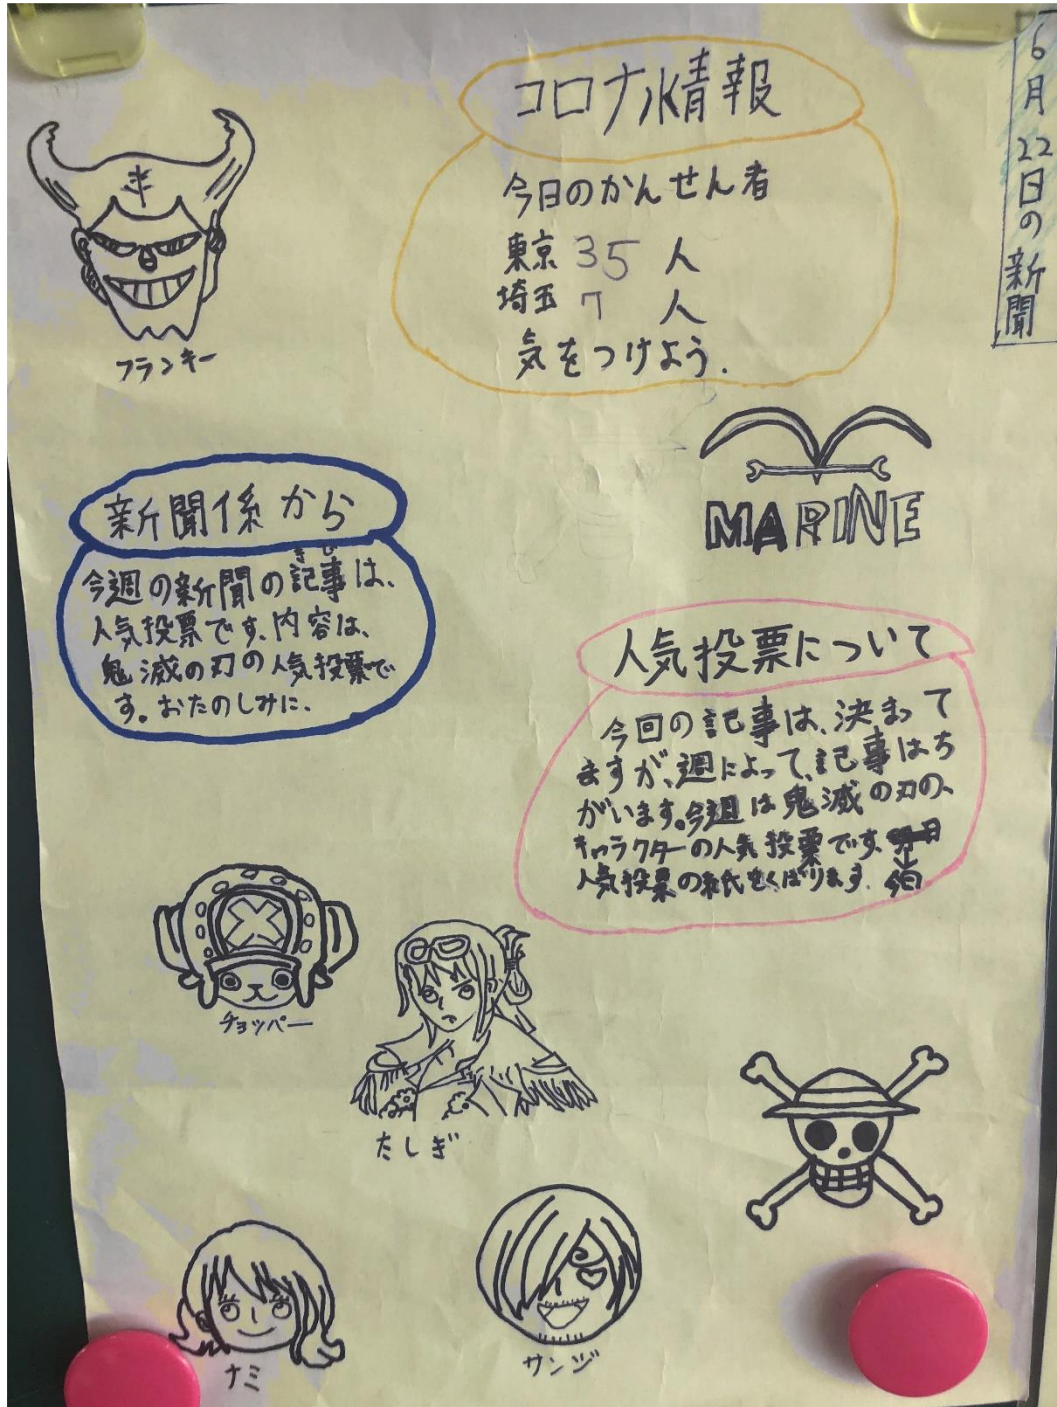 6月22日の新聞
コロナ情報
今日のかんせん者
東京 35 人
埼玉 7 人
気をつけよう.
フランキー
MARINE
新聞係から
きじ
今週の新聞の記事は、
人気投票です、内容は、
鬼滅の刃の人気投票で
す。おたのしみに、
人気投票について
今回の記事は、決まって
ますが、週によって、記事はち
がいます。今週は鬼滅の刃の、
キャラクターの人気投票です、
人気投票の紙をくばります. 今日
チョッパー
たしぎ
ナミ
サンジ